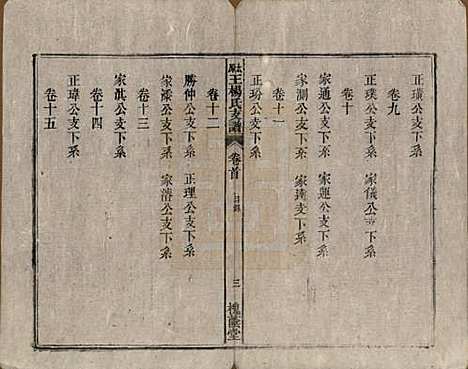 正璜公支下系
卷九
正璞公支下系　家儀公支下系
卷十
家通公支下系　家蓮公支下系
家測公支下系　家達公支下系
卷十一
正玢公支下系
王楊氏支譜　卷首　目錄　三　槐蔭堂
卷十二
勝仲公支下系　正理公支下系
家濬公支下系
卷十三
家𣲗公支下系
卷十四
正瑋公支下系
卷十五